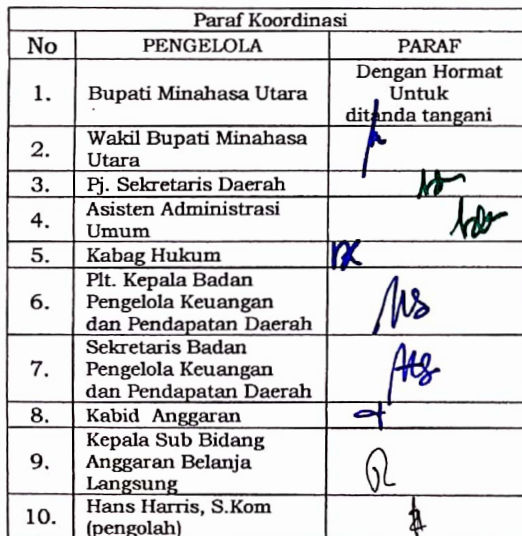 Paraf Koordinasi
No PENGELOLA PARAF
1. Bupati Minahasa Utara Dengan Hormat
Untuk
ditanda tangani
2. Wakil Bupati Minahasa
Utara
3. Pj. Sekretaris Daerah
4. Asisten Administrasi
Umum
5. Kabag Hukum
6. Plt. Kepala Badan
Pengelola Keuangan
dan Pendapatan Daerah
7. Sekretaris Badan
Pengelola Keuangan
dan Pendapatan Daerah
8. Kabid Anggaran
9. Kepala Sub Bidang
Anggaran Belanja
Langsung
10. Hans Harris, S.Kom
(pengolah)